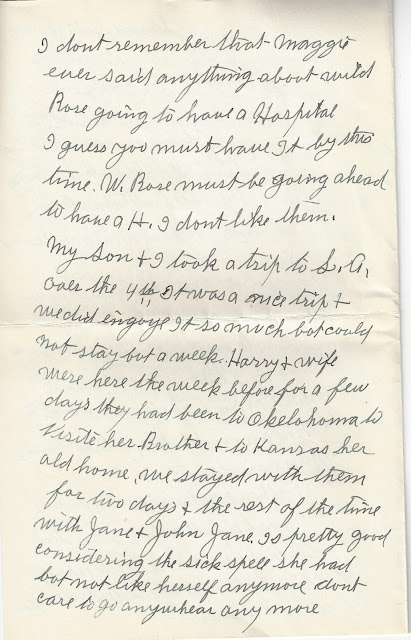 I dont remember that Maggie
ever said anything about wild
Rose going to have a Hospital
I guess yoo must have It by this
time. W. Rose must be going ahead
to have a H. I dont like them.
My Son & I took a trip to L. A.
over the 4th It was a nice trip &
we did engoye It so much but could
not stay but a week. Harry & wife
were here the week before for a few
days they had been to Okelohoma to
visite her Brother & to Kansas her
old home, we stayed with them
for two days & the rest of the time
with Jane & John Jane. is pretty good
considering the sick spele she had
but not like herself anymore dont
care to go anywhear any more